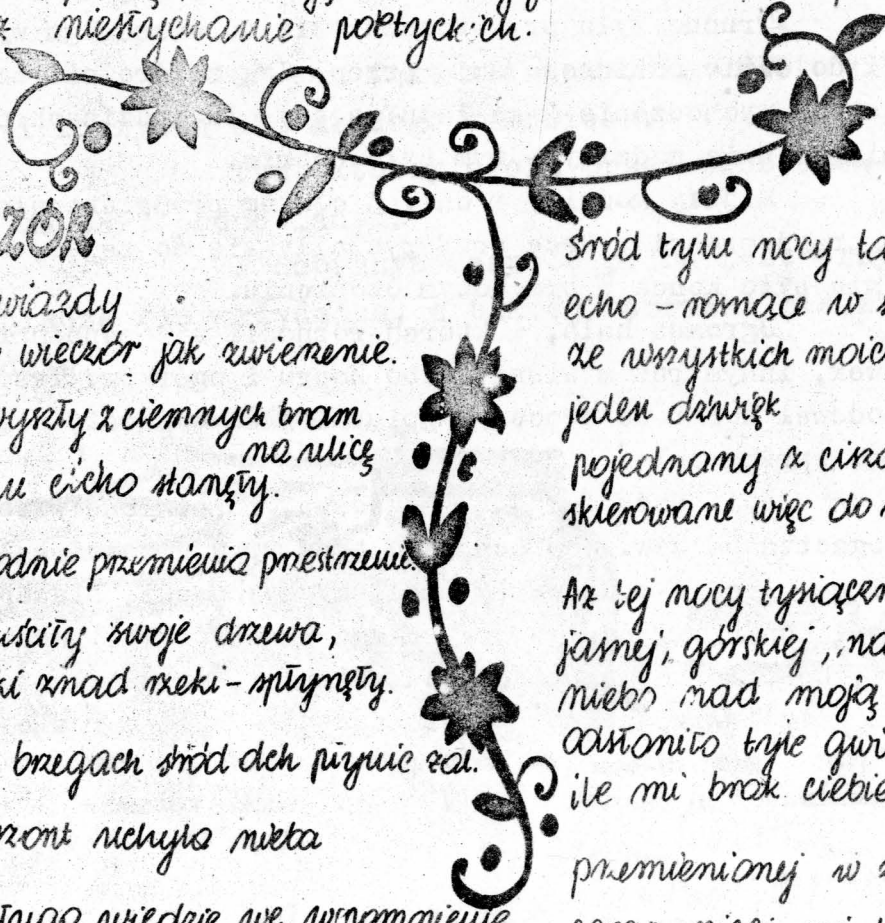 z niesłychanie poetyckich.
ZÓR
wiazdy
wieczór jak zwierzenie.
wyszły z ciemnych bram
na ulicę
cicho stanęły.
przemienia przestrzenie.
swoje drzewa,
znad rzeki - spłynęły.
brzegach śród żal.
uchyla nieba
we wspomnienie
Śród tylu nocy ta
echo - rosnące w s
ze wszystkich moich
jeden dźwięk
pojednany z cisz
skierowane więc do
Aż tej nocy tysiączn
jasnej, górskiej, na
niebo nad moją
odsłoniło tyle gwi
ile mi brak ciebie
przemienionej w